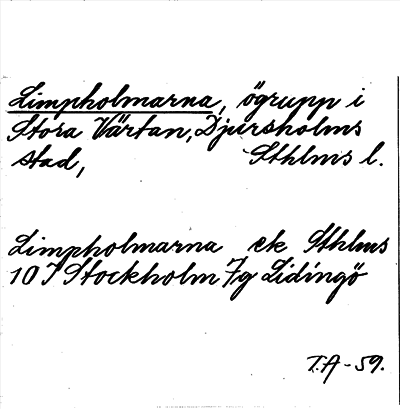 Limpholmarna, ögrupp i
Stora Värtan, Djursholms
stad, Sthlms l.
Limpholmarna ek Sthlms
10 I Stockholm 7g Lidingö
T.A -59.